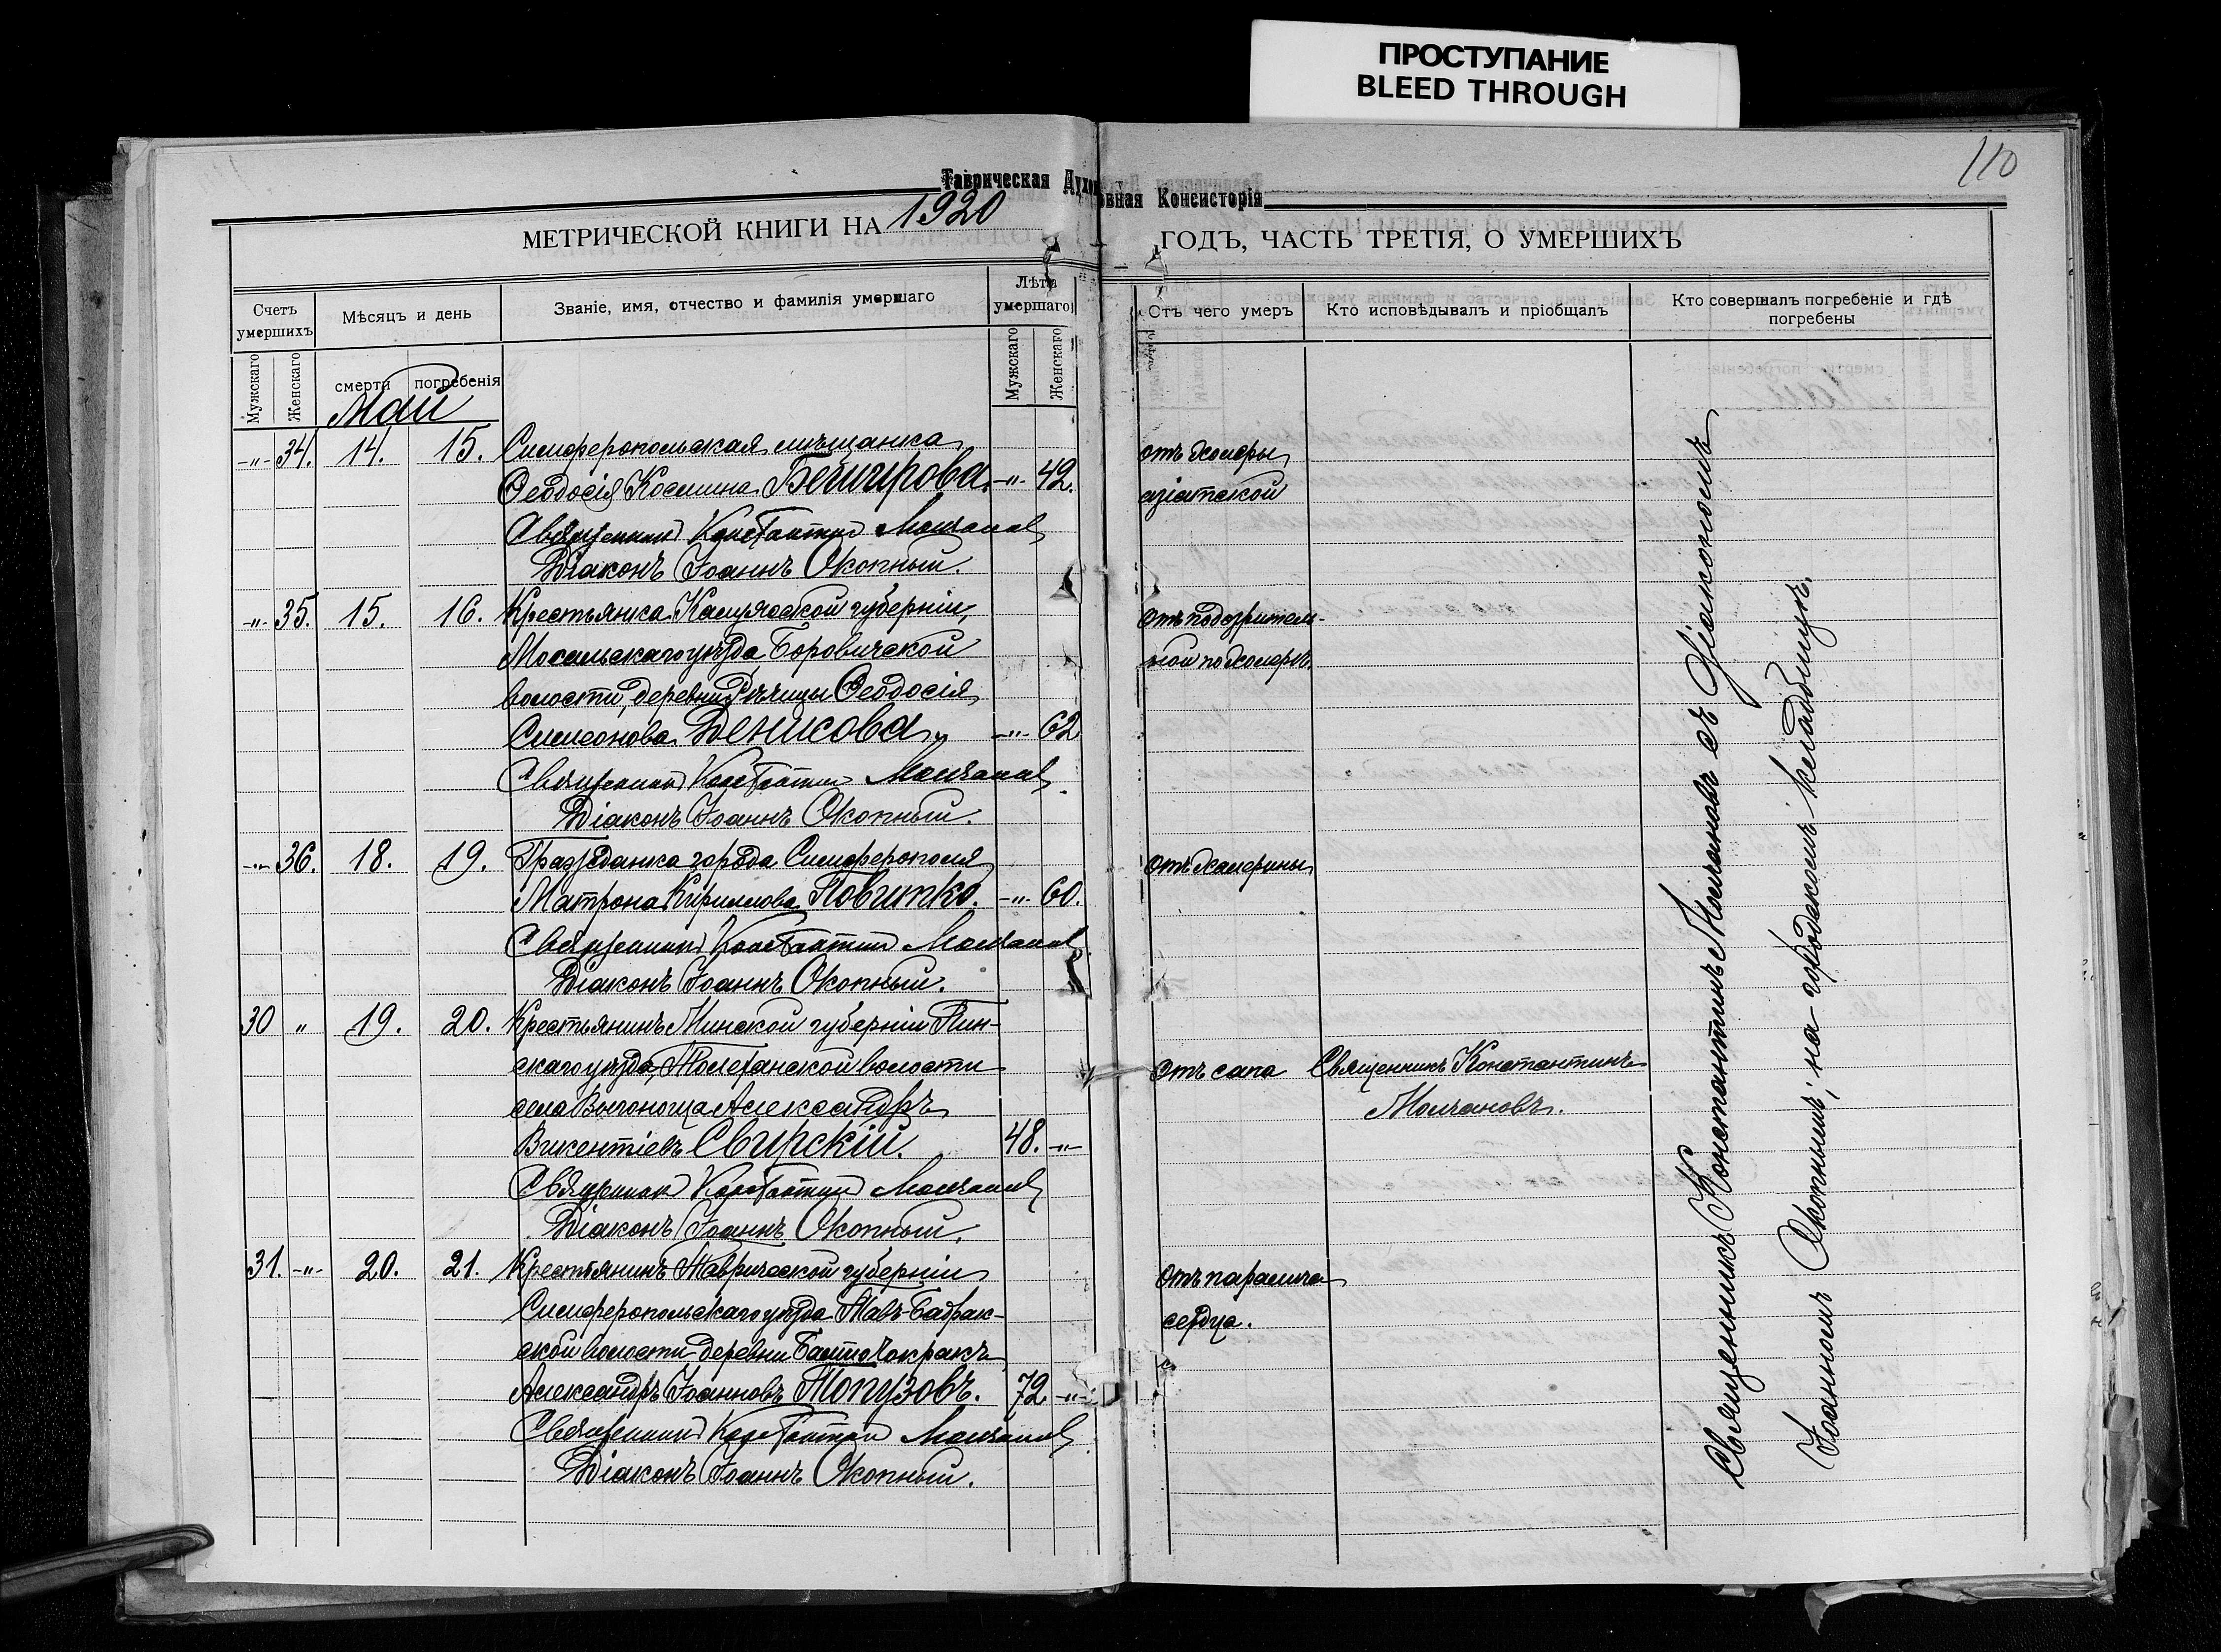 ПРОСТУПАНИЕ
BLEED THROUGH
110
Таврическая Духовная Консисторія
МЕТРИЧЕСКОЙ КНИГИ НА 1920 ГОДЪ, ЧАСТЬ ТРЕТІЯ, О УМЕРШИХЪ
Счетъ умершихъ
Мѣсяцъ и день
Званіе, имя, отчество и фамилія умершаго
Лѣта умершаго
Отъ чего умеръ
Кто исповѣдывалъ и пріобщалъ
Кто совершалъ погребеніе и гдѣ погребены
Мужскаго
Женскаго
смерти
погребенія
Мужскаго
Женскаго
Май
-"- 34. 14. 15. Симферопольская мѣщанка отъ холеры
Ѳеодосія Космина -"- 42. азіатской
Священник Константин Молчанов
Діаконъ Іоаннъ Окопный.
-"- 35. 15. 16. Крестьянка Калужской губерніи, отъ подозритель-
Мосальскаго уѣзда Боровичской ной по холерѣ
волости, деревни Ѳеодосія
Симеонова Денисова. -"- 62
Священник Константин Молчанов
Діаконъ Іоаннъ Окопный.
-"- 36. 18. 19. Гражданка города Симферополя отъ холерины
Матрона Кириллова Повитко. -"- 60.
Священник Константин Молчанов
Діаконъ Іоаннъ Окопный.
30 " 19. 20. Крестьянинъ Минской губерніи Пин-
скаго уѣзда, волости отъ сапа Священникъ Константинъ
села Выгоноща Александръ Молчановъ.
Викентіевъ Свирскій. 48. -"-
Священник Константин Молчанов
Діаконъ Іоаннъ Окопный.
31. -"- 20. 21. Крестьянинъ Таврической губерніи отъ паралича
Симферопольскаго уѣзда Тавъ-Бадрак- сердца.
ской волости деревни
Александръ Іоанновъ Топузовъ. 72 -"-
Священник Константин Молчанов
Діаконъ Іоаннъ Окопный.
Священникъ Константинъ Молчановъ съ Діакономъ
Іоанномъ Окопнымъ; на городскомъ кладбищѣ.